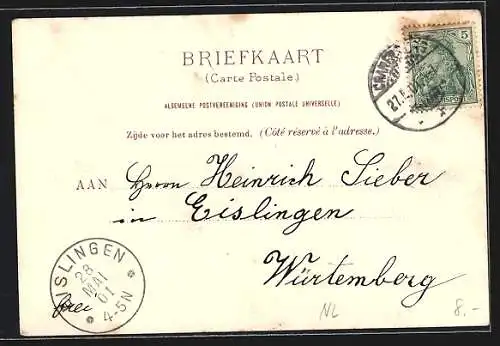 BRIEFKAART
(Carte Postale.)
5
27.5.
ALGEMEENE POSTVEREENIGING (UNION POSTALE UNIVERSELLE)
Zijde voor het adres bestemd. (Côté réservé à l'adresse.)
AAN Herrn Heinrich Sieber
in Eislingen
Würtemberg
EISLINGEN
28
MAI
01
4-5N
frei
NL
8.-